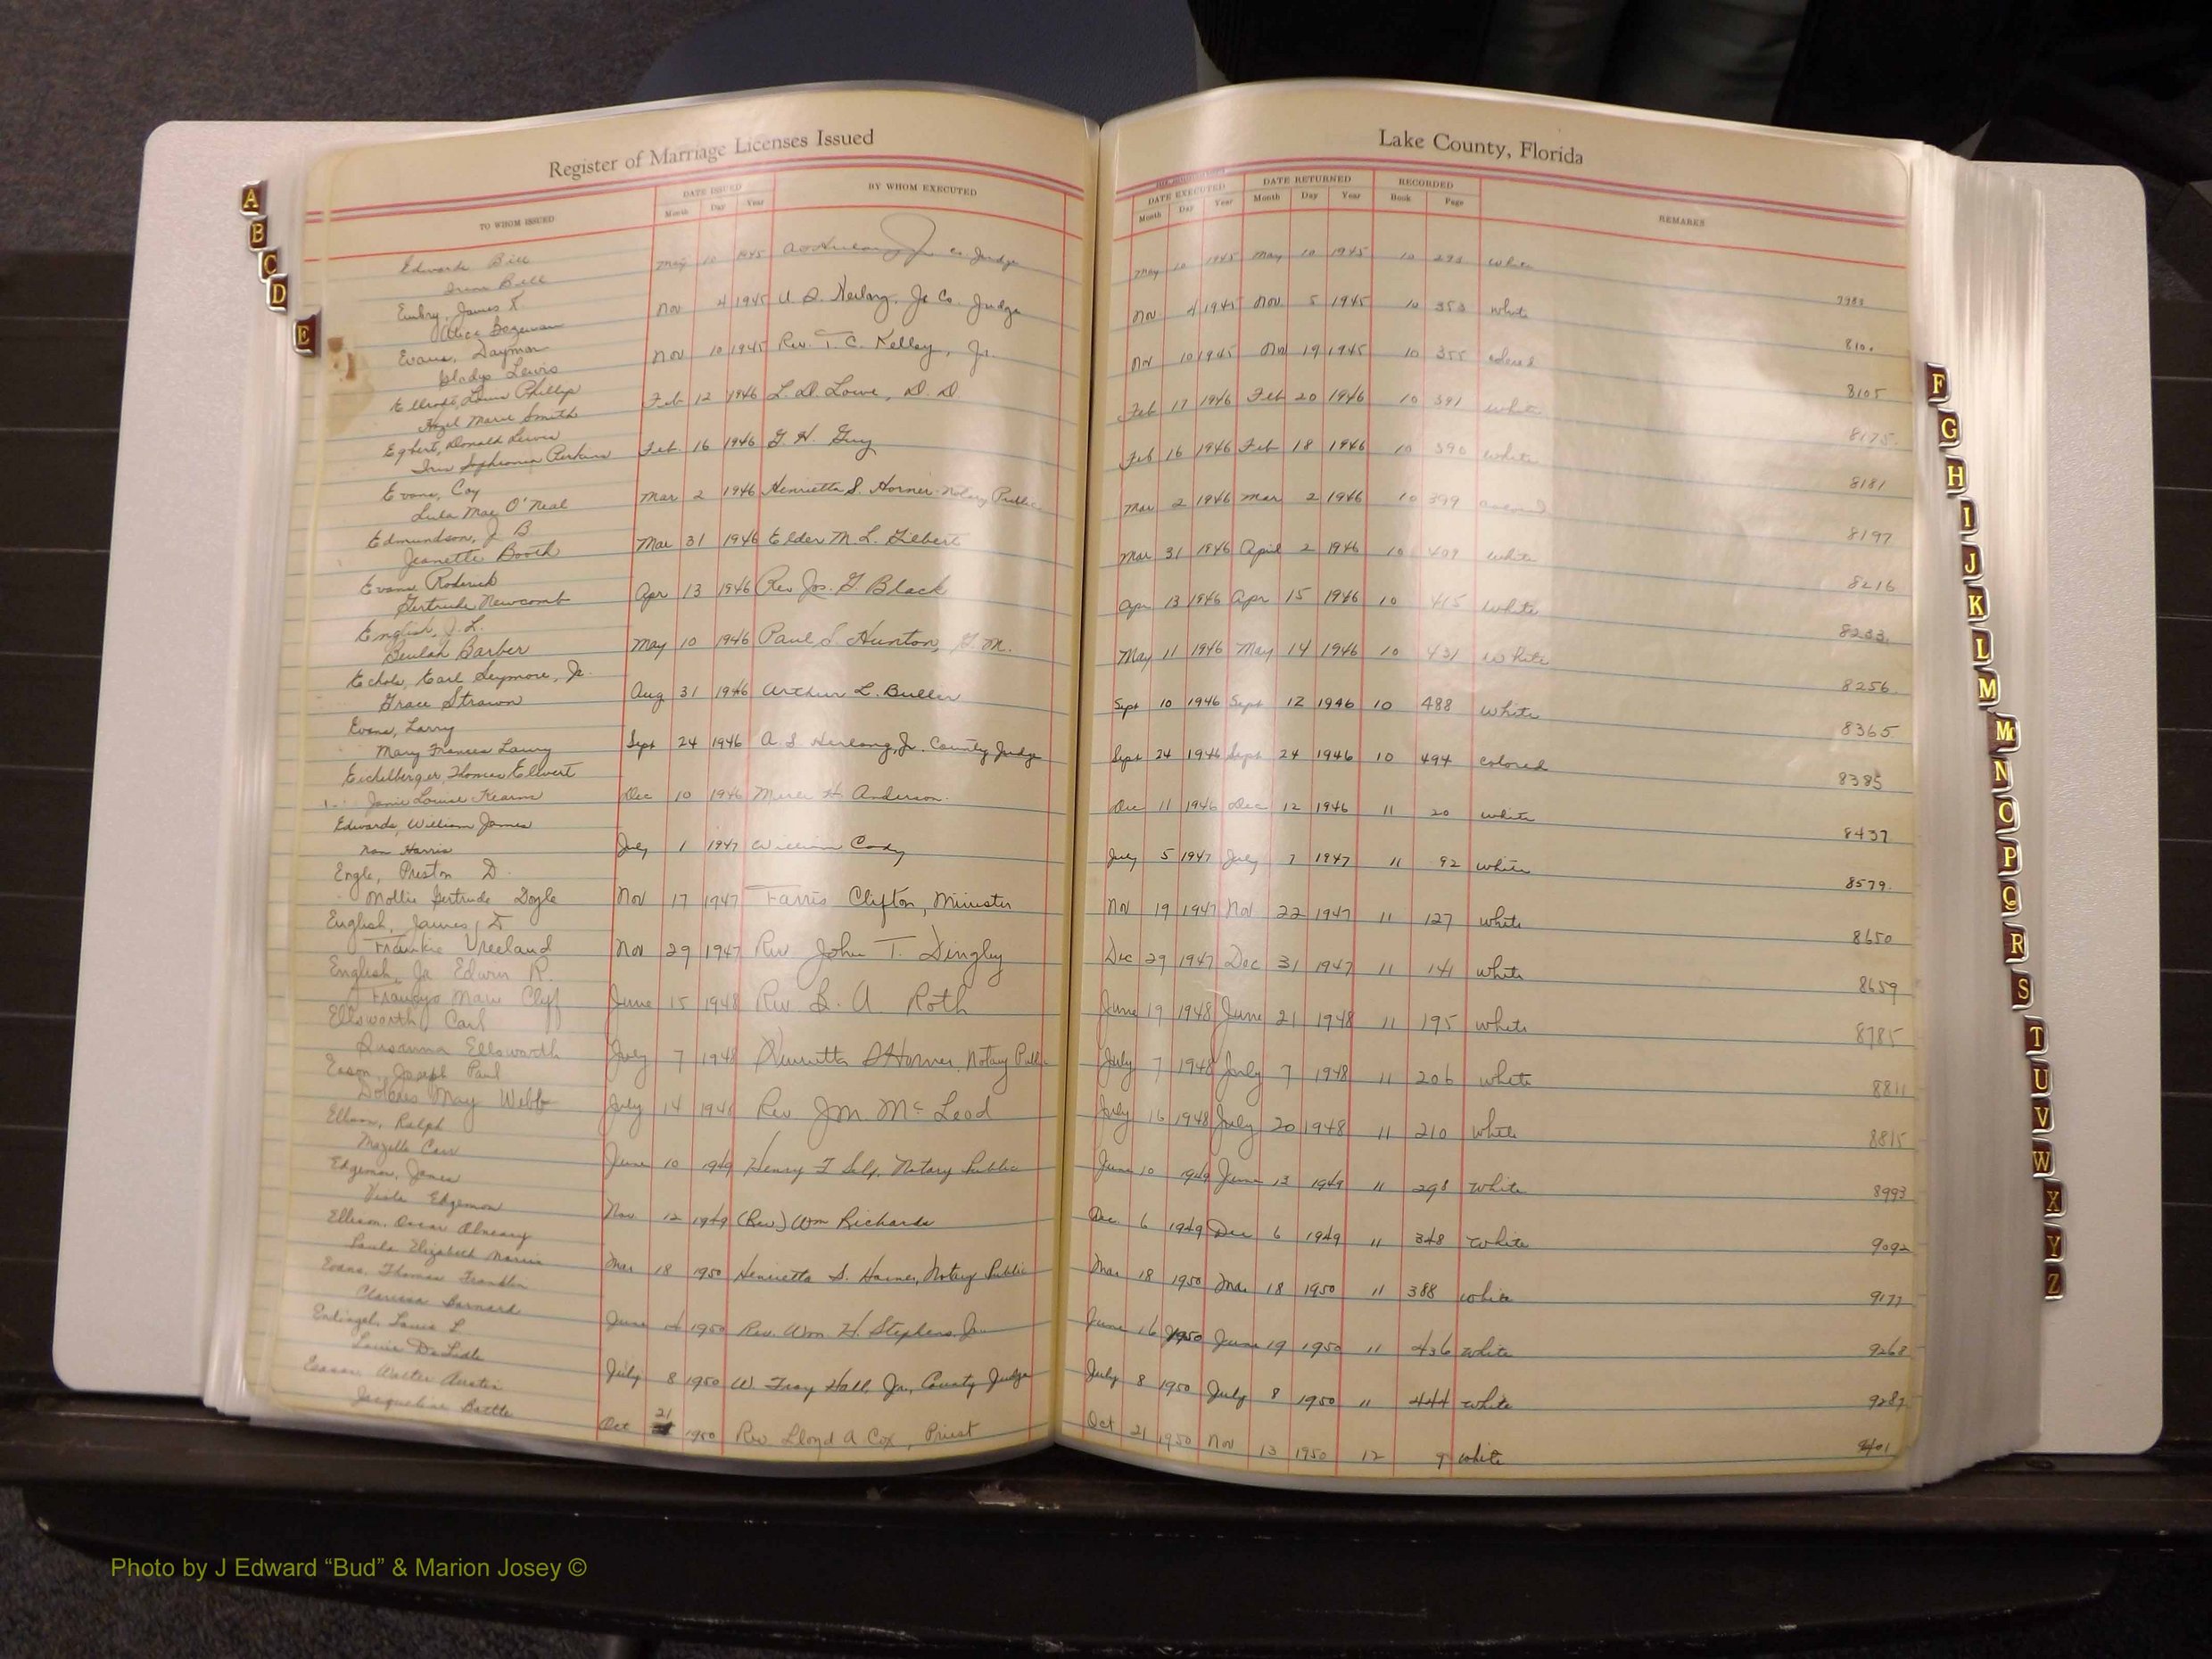 Register of Marriage Licenses Issued
Lake County, Florida
TO WHOM ISSUED
DATE ISSUED
Month Day Year
BY WHOM EXECUTED
DATE EXECUTED
Month Day Year
DATE RETURNED
Month Day Year
RECORDED
Book Page
REMARKS
Edwards Bill
Bill
May 10 1945 Jr Co. Judge May 10 1945 May 10 1945 10 293 white
Embry, James
Alice Bozeman
Nov 4 1945 Jr Co. Judge Nov 4 1945 Nov 5 1945 10 353 white
Evans, Daymon
Gladys Lewis
Nov 10 1945 Rev. T. C. Kelley, Jr. Nov 10 1945 Nov 19 1945 10 355 8105
Phillip
Hazel Marie Smith
Feb 12 1946 L. D. Lowe, D. D. Feb 17 1946 Feb 20 1946 10 391 white 8175
Egbert, Donald Lewis
Perkins
Feb. 16 1946 G. H. Guy Feb 16 1946 Feb 18 1946 10 390 white 8181
Evans, Coy
Lula Mae O'Neal
Mar 2 1946 Henrietta S. Horner - Notary Public Mar 2 1946 Mar 2 1946 10 399 8197
Edmundson, J B
Jeanette Booth
Mar 31 1946 Elder M. L. Gilbert Mar 31 1946 April 2 1946 10 409 white 8216
Evans Roderick
Gertrude Newcomb
Apr 13 1946 Rev Jos. G. Black Apr 13 1946 Apr 15 1946 10 415 white 8233
English, J. L.
Beulah Barber
May 10 1946 Paul S Hunton, May 11 1946 May 14 1946 10 431 white 8256
Echols, Earl Seymore, Jr.
Grace Strawn
Aug 31 1946 Arthur L. Buller Sept 10 1946 Sept 12 1946 10 488 white 8365
Evans, Larry
Mary Frances Laury
Sept 24 1946 A. S. Herlong, Jr. County Judge Sept 24 1946 Sept 24 1946 10 494 colored 8385
Eichelberger, Thomas Ellwert
Janie Louise Kearns
Dec 10 1946 H Anderson. Dec 11 1946 Dec 12 1946 11 20 white 8437
Edwards, William James
Nan Harris
July 1 1947 William Cody July 5 1947 July 7 1947 11 92 white 8579
Engle, Preston D.
Mollie Gertrude Doyle
Nov 17 1947 Farris Clifton, Minister Nov 19 1947 Nov 22 1947 11 127 white 8650
English, James
Frankie Vreeland
Nov 29 1947 Rev John T. Dingley Dec 29 1947 Dec 31 1947 11 141 white 8659
English, Jr Edwin R.
Marie
June 15 1948 Rev L. A. Roth June 19 1948 June 21 1948 11 195 white 8785
Ellsworth, Carl
Susanna Ellsworth
July 7 1948 Henrietta S Horner, Notary Public July 7 1948 July 7 1948 11 206 white 8811
Eason, Joseph Paul
Dolores May Webb
July 14 1948 Rev JM McLeod July 16 1948 July 20 1948 11 210 white 8815
Ellison, Ralph
Mozelle Carr
June 10 1949 Henry Notary Public June 10 1949 June 13 1949 11 298 white 8993
Edgemon, James
Viola Edgemon
Nov. 12 1949 (Rev) Wm Richards Dec. 6 1949 Dec 6 1949 11 348 white 9092
Ellison, Oscar
Elizabeth
Mar 18 1950 Henrietta S. Horner, Notary Public Mar 18 1950 Mar 18 1950 11 388 white 9177
Evans, Thomas Franklin
Clarissa Barnard
June 1950 Rev. Wm H. Stephens, Jr. June 16 1950 June 19 1950 11 436 white 9268
L
Louise DeLisle
July 8 1950 W Troy Hall, Jr., County Judge July 8 1950 July 8 1950 11 444 white 9287
Eason Walter Austin
Jacqueline Battle
Oct 21 1950 Rev Lloyd A Cox, Priest Oct 21 1950 Nov 13 1950 12 9 white
A
B
C
D
E
F
G
H
I
J
K
L
M
Mc
N
O
P
Q
R
S
T
U
V
W
X
Y
Z
Photo by J Edward “Bud” & Marion Josey ©